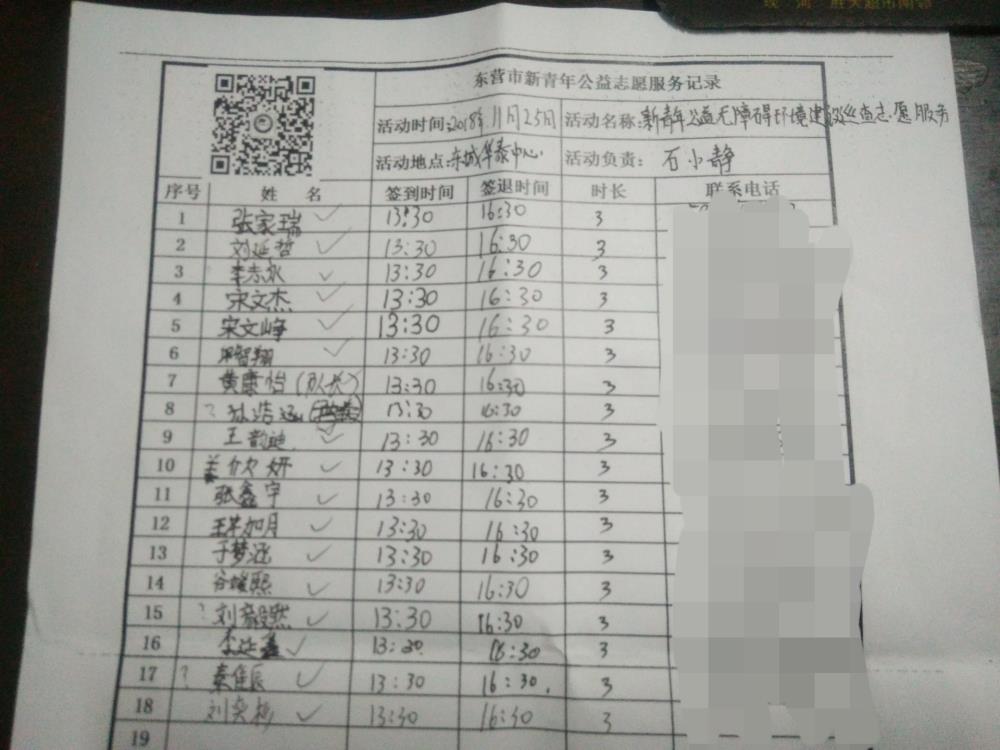 东营市新青年公益志愿服务记录
活动时间:2018年11月25日 活动名称:新青年公益无障碍环境建设巡查志愿服务
活动地点:东城华泰中心 活动负责: 石小静
序号 姓 名 签到时间 签退时间 时长 联系电话
1 张家瑞 ✓ 13:30 16:30 3
2 刘延哲 ✓ 13:30 16:30 3
3 ✓ 13:30 16:30 3
4 宋文杰 ✓ 13:30 16:30 3
5 宋文峥 ✓ 13:30 16:30 3
6 智翔 ✓ 13:30 16:30 3
7 黄康怡(队长) 13:30 16:30 3
8 ? 孙浩 13:30 16:30 3
9 王韵迪 ✓ 13:30 16:30 3
10 姜欣妍 ✓ 13:30 16:30 3
11 张鑫宇 ✓ 13:30 16:30 3
12 ✓ 13:30 16:30 3
13 于梦涵 ✓ 13:30 16:30 3
14 ✓ 13:30 16:30 3
15 ? 刘毅然 ✓ 13:30 16:30 3
16 李延鑫 ✓ 13:30 16:30 3
17 ? 秦佳辰 ✓ 13:30 16:30. 3
18 刘奕杨 ✓ 13:30 16:30 3
19